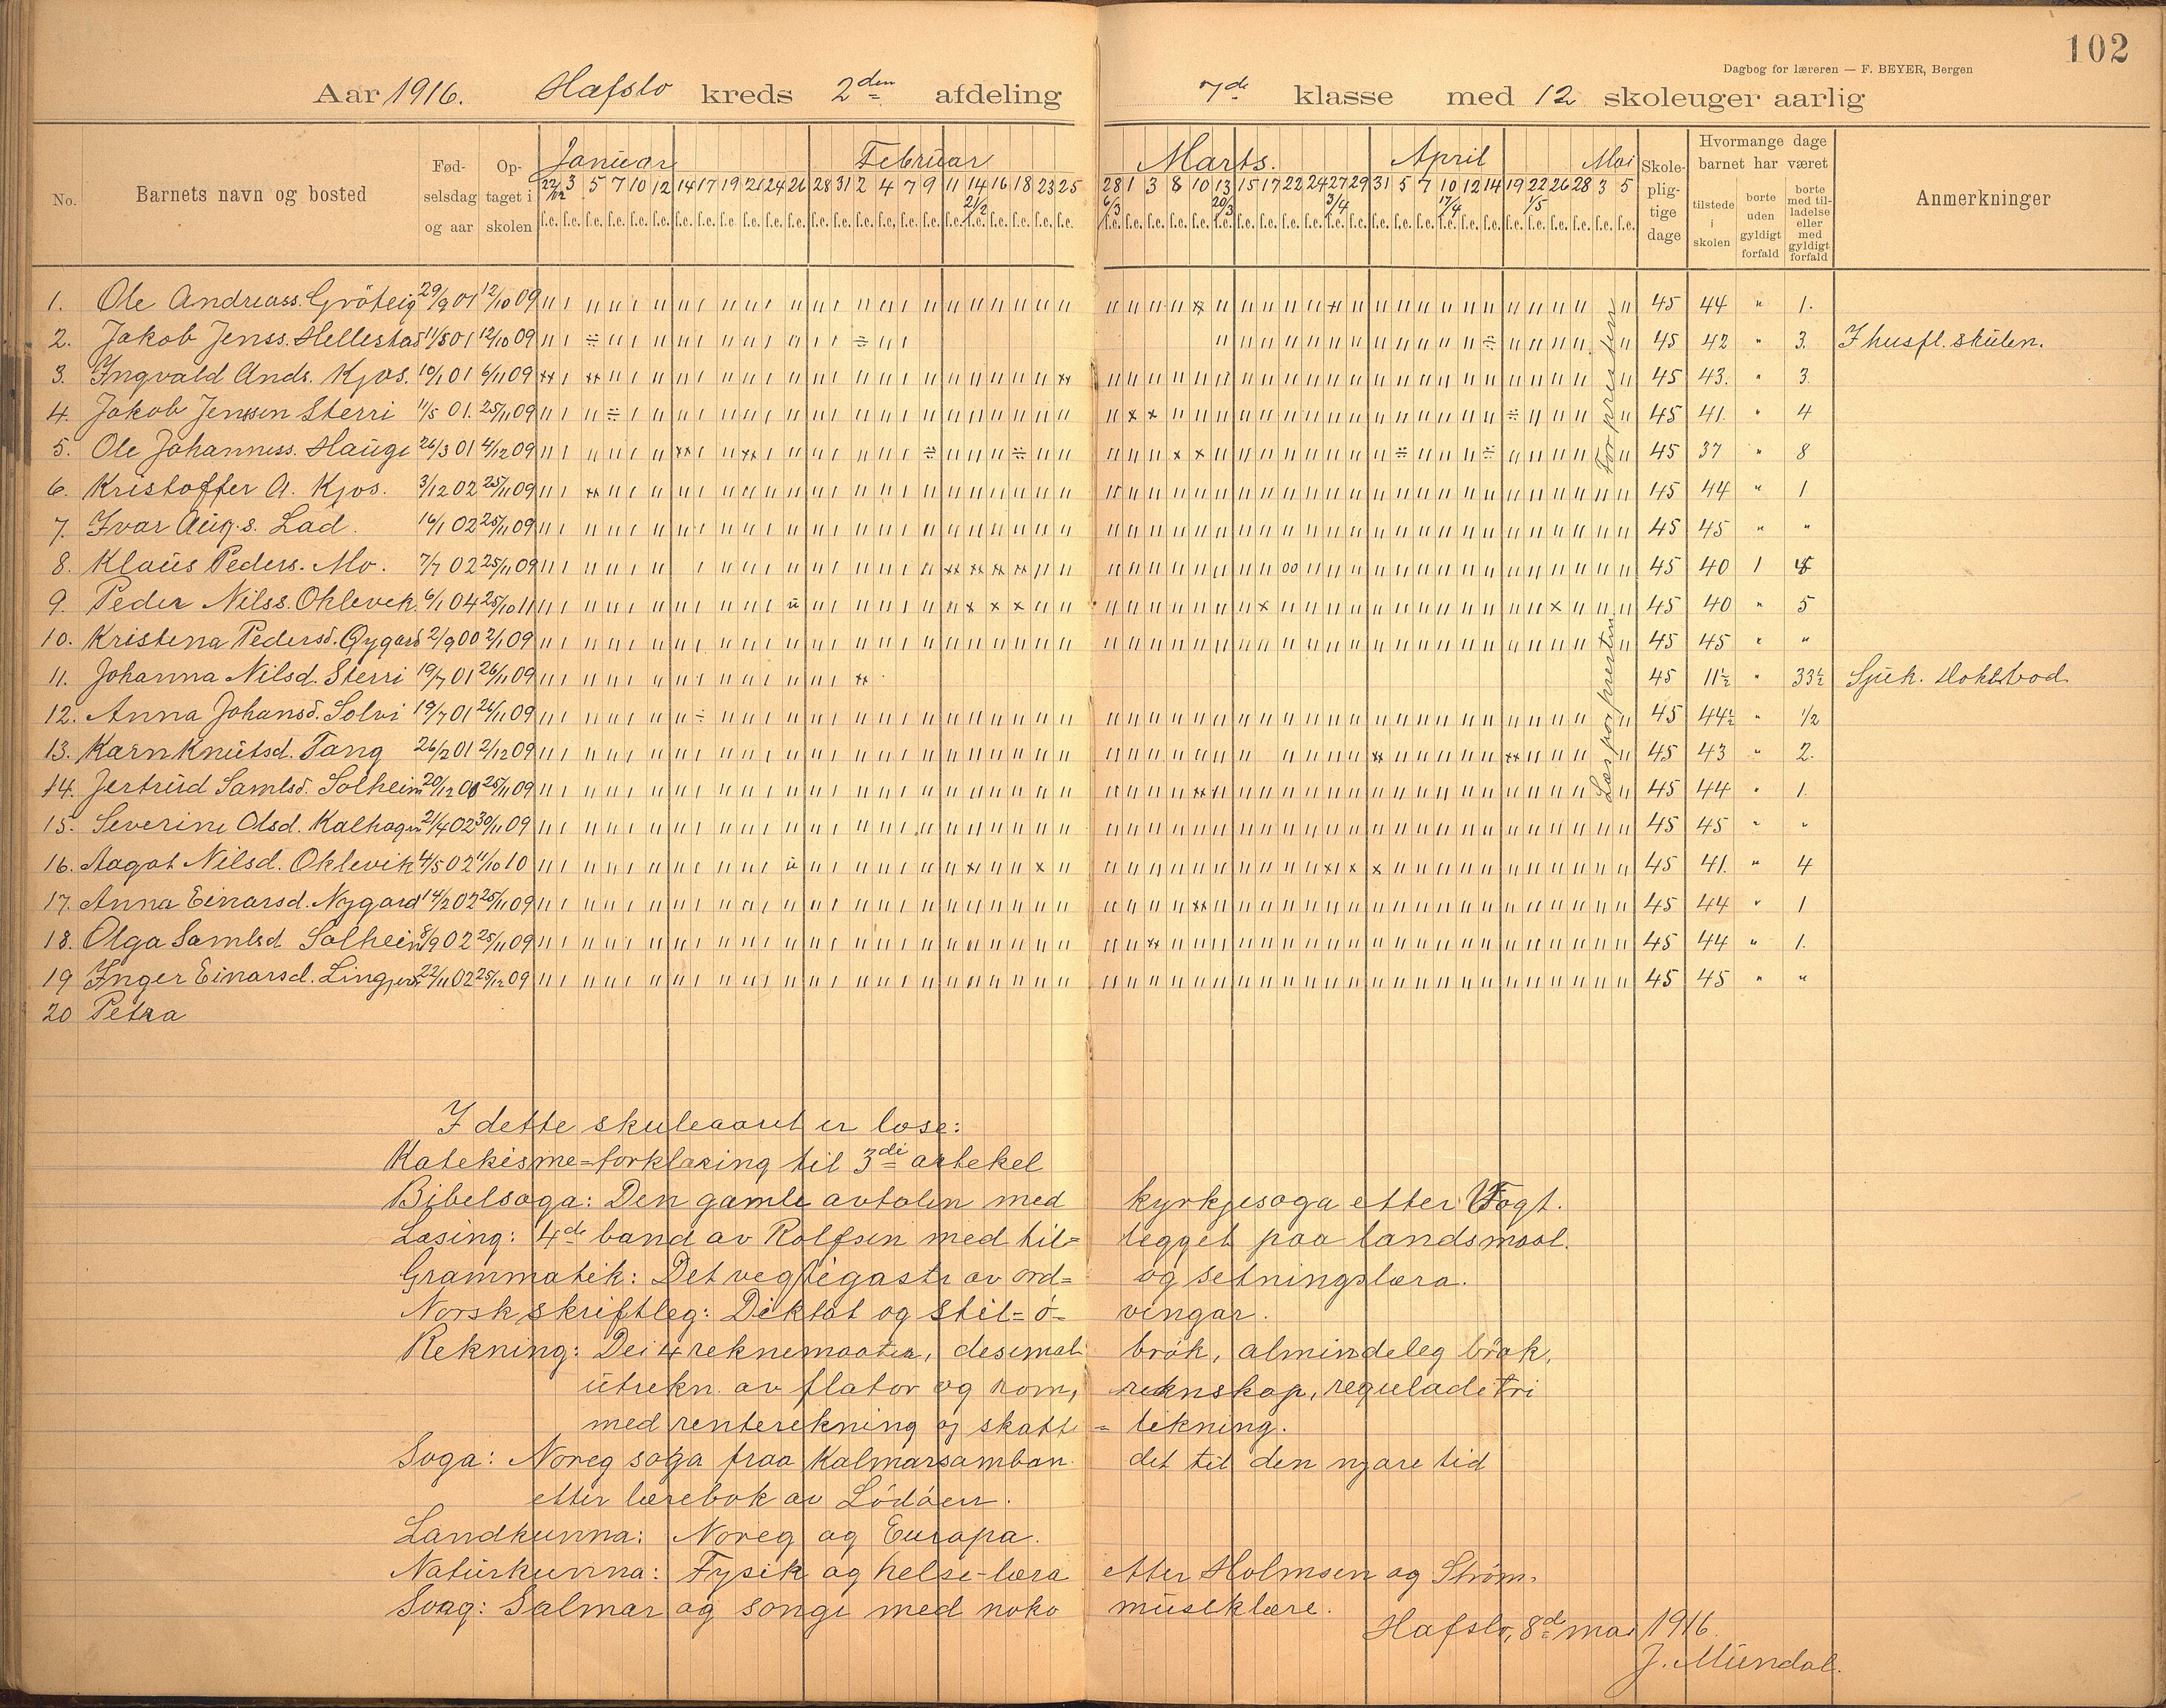 102
Dagbog for læreren — F. BEYER, Bergen
Aar 1916. Hafslo kreds 2den afdeling 7de klasse med 12 skoleuger aarlig
No. Barnets navn og bosted Fødselsdag og aar Optaget i skolen Januar Februar Marts. April Mai Skolepligtige dage Hvormange dage barnet har været Anmerkninger
tilstede i skolen borte uden gyldigt forfald borte med tilladelse eller med gyldigt forfald
22/12 3 5 7 10 12 14 17 19 21 24 26 28 31 2 4 7 9 11 14 16 18 23 25 28 1 3 8 10 13 15 17 22 24 27 29 31 5 7 10 12 14 19 22 26 28 3 5
21/2 6/3 20/3 3/4 17/4 1/5
1. Ole Andreass. 29/9 01 12/10 09 45 44 " 1.
2. Jakob Jenss. Hellestad 11/8 01 12/10 09 45 42 " 3. I husfl. skulen.
3. Ingvald Ands. Kjos. 10/1 01 6/11 09 45 43. " 3
4. Jakob Jenssen Sterri 11/5 01. 25/11 09 45 41. " 4
5. Ole Johanness. Hauge 26/3 01 4/12 09 45 37 " 8
6. Kristoffer A. Kjos. 3/12 02 25/11 09 45 44 " 1
7. Ivar Aug.s. Lad. 16/1 02 25/11 09 45 45 " "
8. Klaus Peders. Mo. 7/7 02 25/11 09 45 40 1
9. Peder Nilss. Oklevik. 6/1 04 25/10 11 45 40 " 5
10. Kristena Pedersd. 2/9 00 2/1 09 45 45 " "
11. Johanna Nilsd. Sterri 19/7 01 26/11 09 45 11½ " 33½ Sjuk.
12. Anna Johansd. Solvi 19/7 01 26/11 09 45 44½ " 1/2
13. Karn Knutsd. Tang 26/2 01 2/12 09 45 43 " 2.
14. Jertrud Samlsd. Solheim 20/12 01 25/11 09 45 44 " 1.
15. Severine Olsd. Kalhagen 21/4 02 30/11 09 45 45 " "
16. Aagot Nilsd. Oklevik 4/5 02 11/10 10 45 41. " 4
17. Anna Einarsd. Nygard 14/2 02 25/11 09 45 44 " 1
18. Olga Samlsd Solheim 8/9 02 25/11 09 45 44 " 1.
19 Inger Einarsd. 22/11 02 25/12 09 45 45 " "
20 Petra
for presten
Les for presten
I dette skuleaaret er lose:
Katekisme=forklaring til 3di artekel
Bibelsoga: Den gamle avtalen med kyrkjesoga etter Vogt.
Læsing: 4de band av Rolfsen med til= legget paa landsmaal.
Grammatik: Det vegtigaste av ord= og setningslæra.
Norsk skriftleg: Diktat og stil=ö= vingar.
Rekning: Dei 4 reknemaatar, desimal brök, almindeleg brök,
utrekn. av flator og rom, reknskap, reguladetri
med renterekning og skatte = likning.
Soga: Noreg soga fraa Kalmarsamban det til den nyare tid
etter lærebok av Lödöen.
Landkunna: Noreg og Europa.
Naturkunna: Fysik og helse-læra etter Holmsen og Ström.
Song: Salmar og songe med noko musiklære.
Hafslo, 8de mai 1916.
J. Mundal.